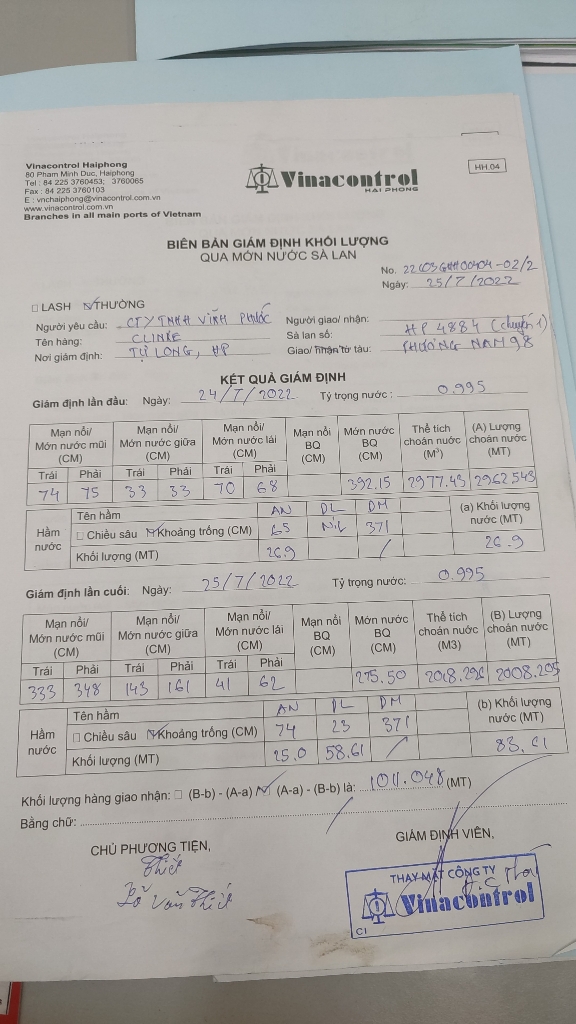 Vinacontrol Haiphong
80 Pham Minh Duc, Haiphong
Tel : 84 225 3760453; 3760065
Fax : 84 225 3760103
E : vnchaiphong@vinacontrol.com.vn
www.vinacontrol.com.vn
Branches in all main ports of Vietnam
Vinacontrol
HAI PHONG
HH.04
BIÊN BẢN GIÁM ĐỊNH KHỐI LƯỢNG
QUA MỚN NƯỚC SÀ LAN
No. 22G03GHH00404-02/2
Ngày: 25/7/2022
LASH THƯỜNG
Người yêu cầu: CTY TNHH VĨNH PHƯỚC Người giao/ nhận:
Tên hàng: CLINKE Sà lan số: HP 4884 (chuyến 1)
Nơi giám định: TỰ LONG, HP Giao/ Nhận từ tàu: PHƯƠNG NAM 98
KẾT QUẢ GIÁM ĐỊNH
Giám định lần đầu: Ngày: 24/7/2022 Tỷ trọng nước: 0.995
Mạn nổi/ Mớn nước mũi (CM) Mạn nổi/ Mớn nước giữa (CM) Mạn nổi/ Mớn nước lái (CM) Mạn nổi BQ (CM) Mớn nước BQ (CM) Thể tích choán nước (M³) (A) Lượng choán nước (MT)
Trái Phải Trái Phải Trái Phải
74 75 33 33 70 68 392.15 2977.43 2962.543
Hầm nước Tên hầm AN DL DM (a) Khối lượng nước (MT)
Chiều sâu Khoảng trống (CM) 65 NiL 371
Khối lượng (MT) 26.9 / 26.9
Giám định lần cuối: Ngày: 25/7/2022 Tỷ trọng nước: 0.995
Mạn nổi/ Mớn nước mũi (CM) Mạn nổi/ Mớn nước giữa (CM) Mạn nổi/ Mớn nước lái (CM) Mạn nổi BQ (CM) Mớn nước BQ (CM) Thể tích choán nước (M3) (B) Lượng choán nước (MT)
Trái Phải Trái Phải Trái Phải
333 348 143 161 41 62 275.50 2018.296 2008.205
Hầm nước Tên hầm AN DL DM (b) Khối lượng nước (MT)
Chiều sâu Khoảng trống (CM) 74 23 371
Khối lượng (MT) 25.0 58.61 / 83.61
Khối lượng hàng giao nhận: (B-b) - (A-a) (A-a) - (B-b) là: 1011.048 (MT)
Bằng chữ:
CHỦ PHƯƠNG TIỆN, GIÁM ĐỊNH VIÊN,
Thiết
Văn Thiết
THAY MẶT CÔNG TY
Vinacontrol
C1